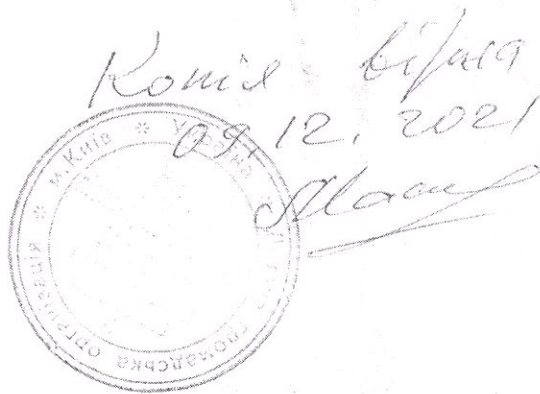 Копія вірна
09.12.2021
м.Київ * Україна * громадська організація *